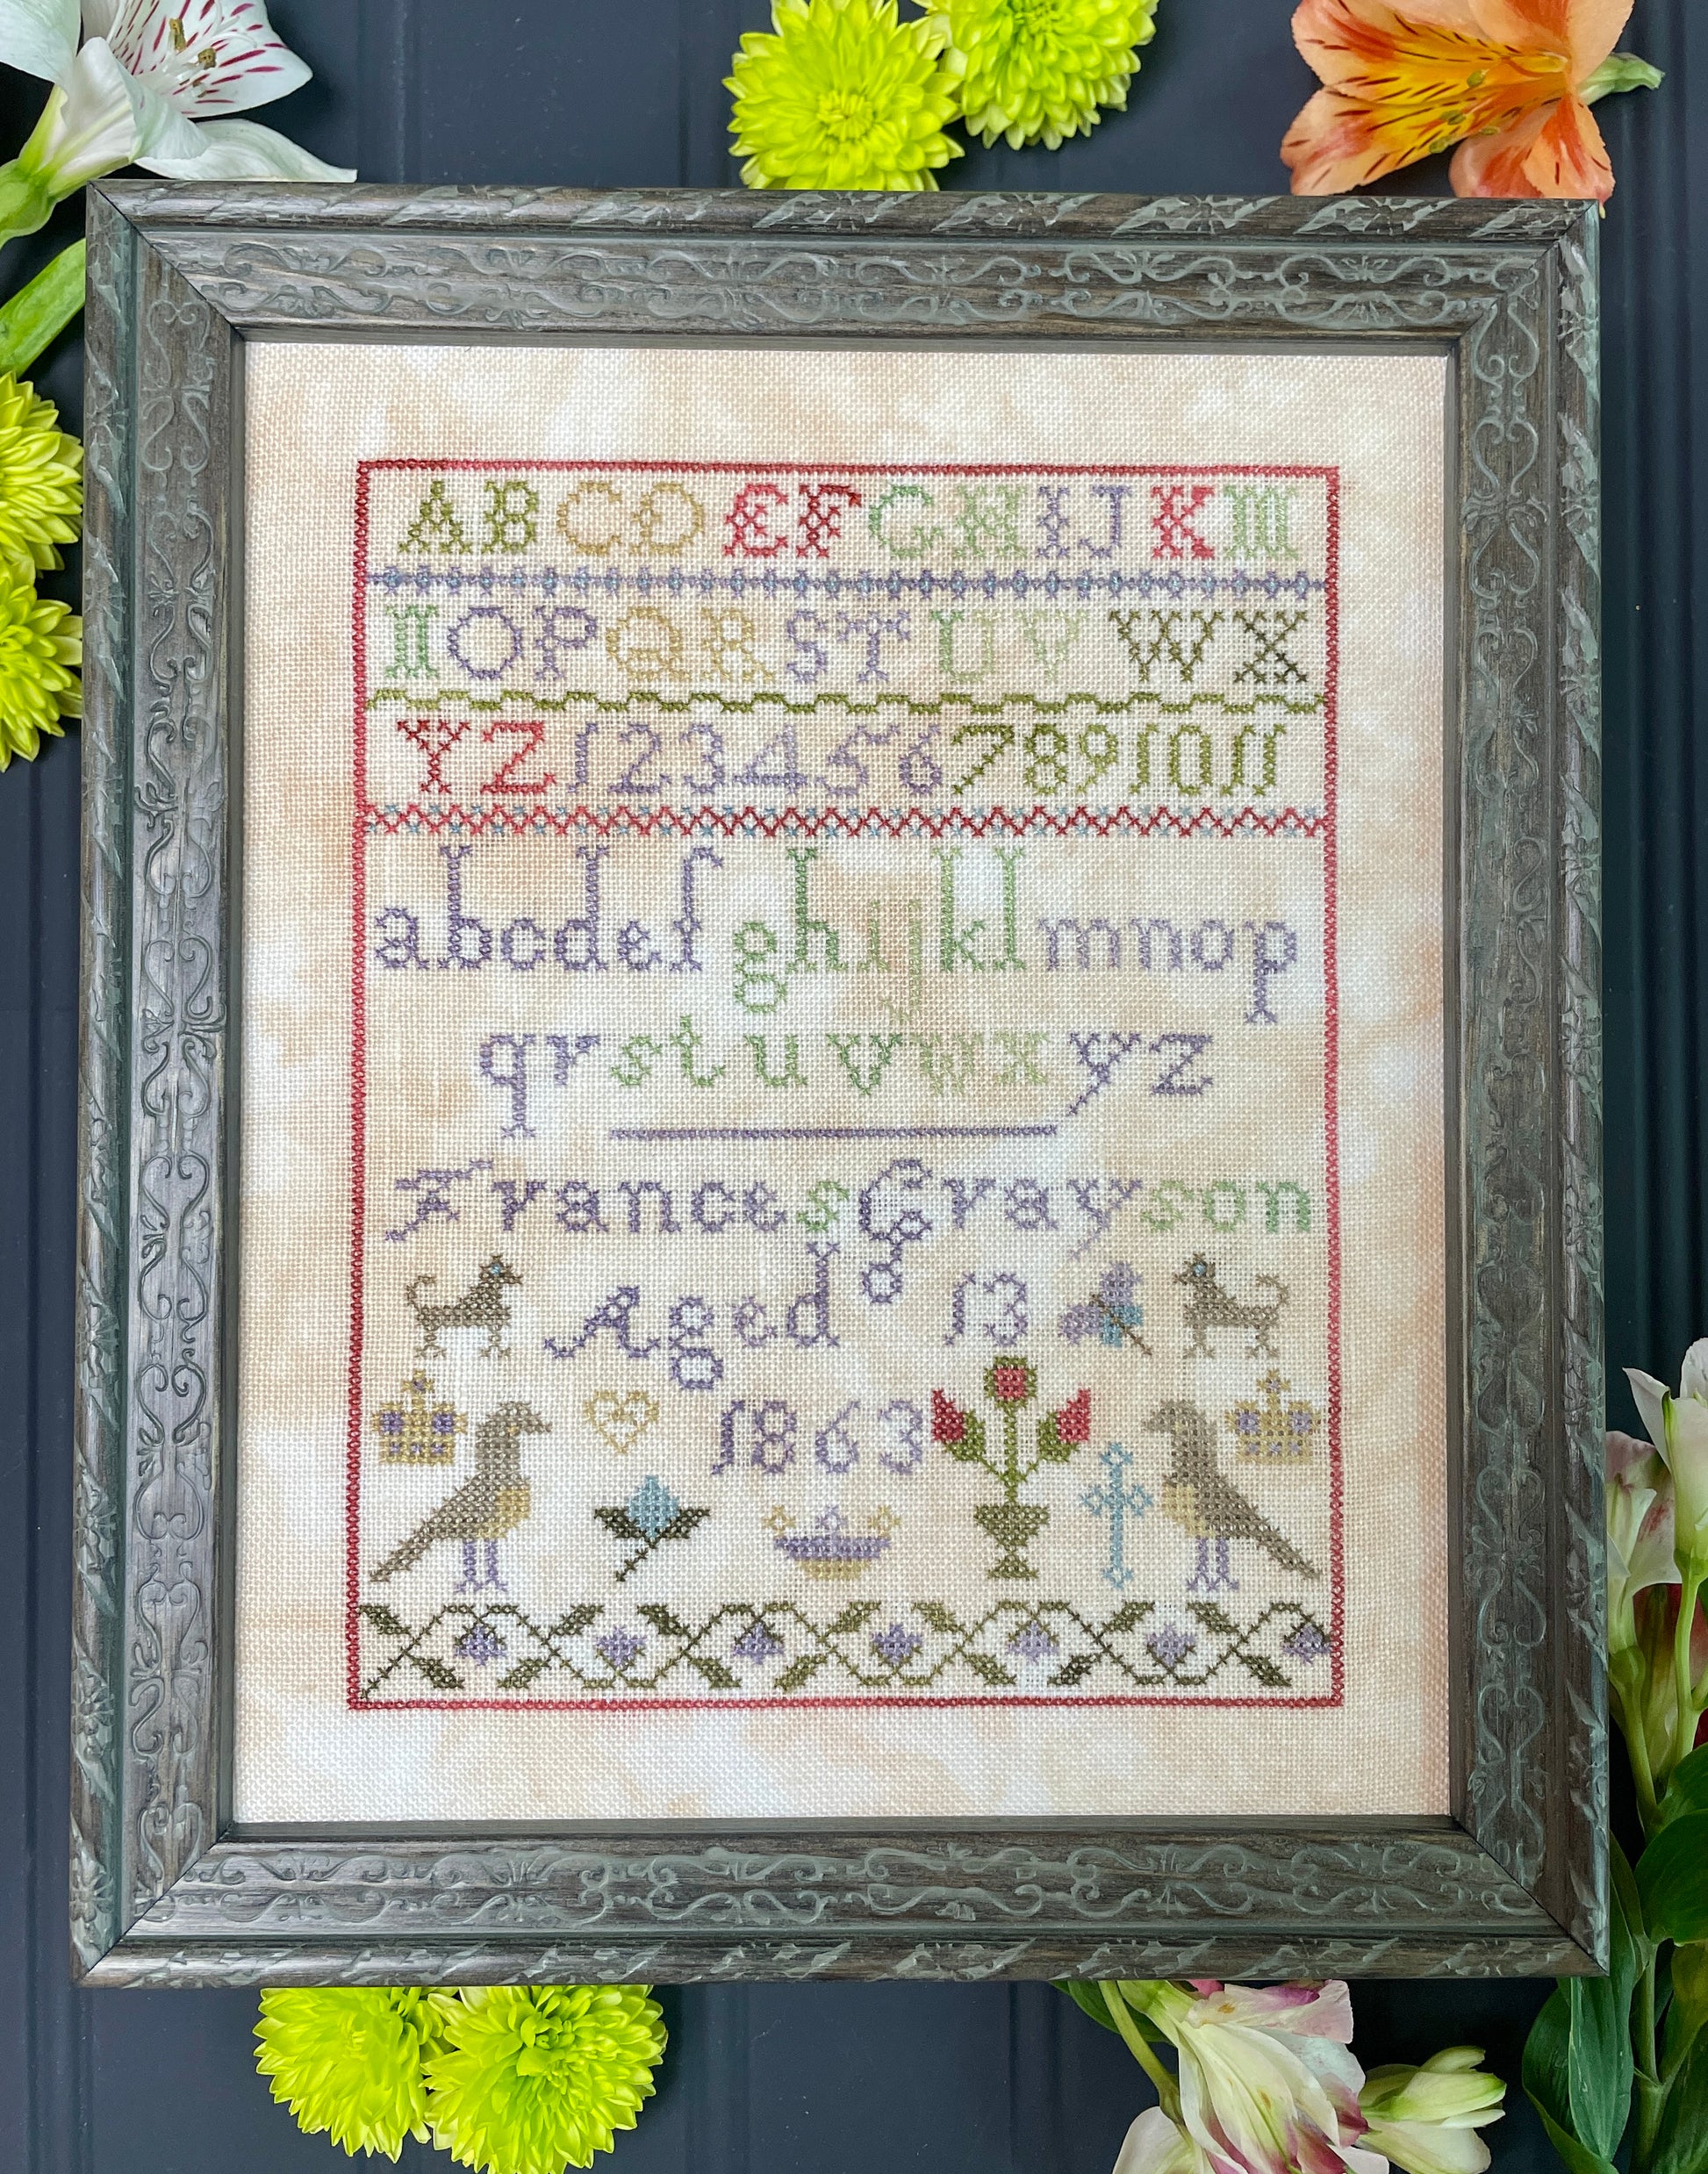 ABCDEFGHIJKM
NOPQRSTUVWX
YZ1234567891011
abcdefghijklmnop
qrstuvwxyz
Frances Grayson
Aged 13
1863